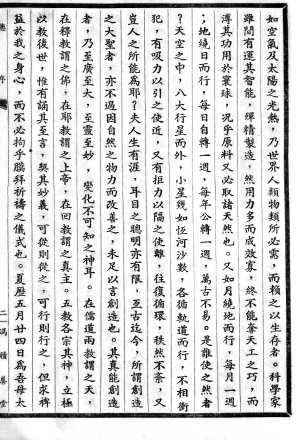 如空氣及太陽之光熱，乃世界人類物類所必需，而賴之以生存者。科學家
雖間有運其智能，殫精製造，然用力多而成效寡，終不能奪天工之巧，而
溥其功用於寰球，況乎原料又必取諸天然也。又如月繞地而行，每月一週
；地繞日而行，每日自轉一週，每年公轉一週，萬古不易。是誰使之然者
？天空之中，八大行星而外，小星幾如恆河沙數，各循軌道而行，不相衝
犯，有吸力以引之使近，又有拒力以隔之使離，往復循環，秩然不紊，又
豈人之所能為耶？夫人生有涯，耳目之聰明亦有限，亙古迄今，所謂創造
之大聖者，亦不過因自然之物力而改善之，未足以言創造也。其真能創造
者，乃至廣至大，至靈至妙，變化不可知之神耳。在儒道兩教謂之天，
在釋教謂之佛，在耶教謂之上帝，在回教謂之真主。五教各宗其神，立極
以教後世，惟有誦其至言，契其妙義，可從則從之，可行則行之，但求裨
益於我之身心，而不必拘乎膜拜祈禱之儀式也。夏歷五月廿四日為吾母太
總序
二
馮積善堂